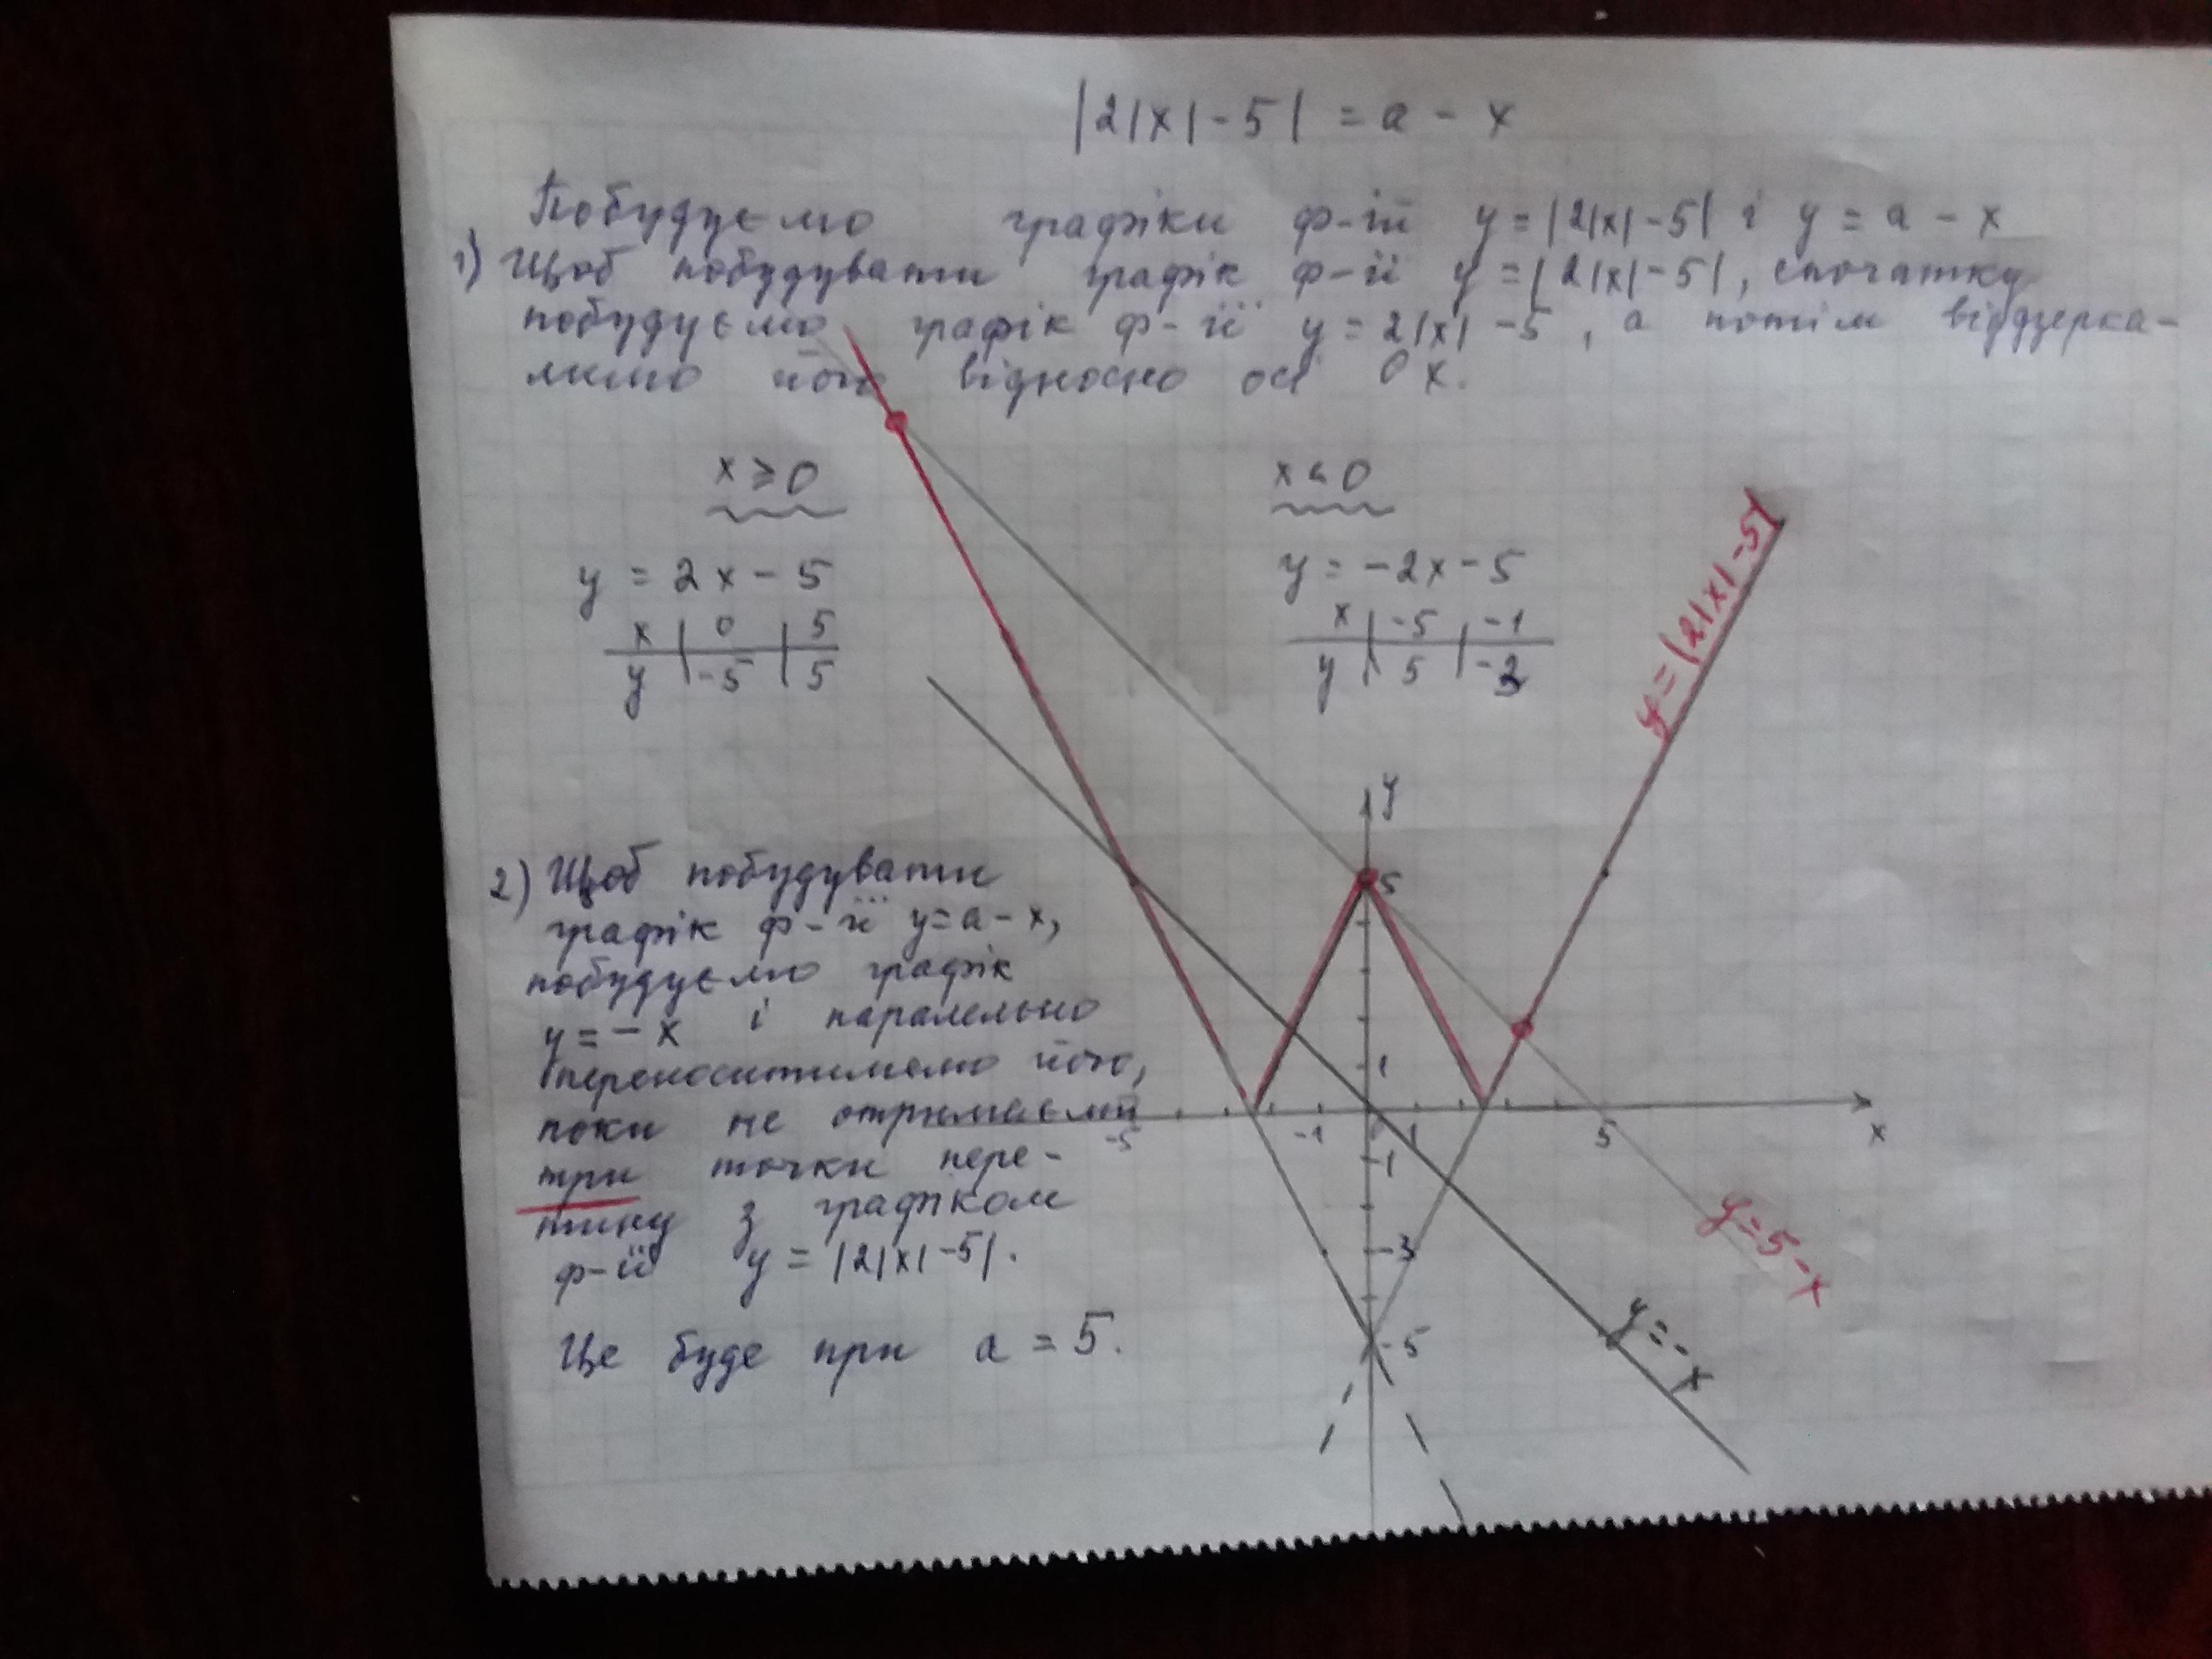 |2|x|-5| = a - x
Побудуємо графіки ф-ій y=|2|x|-5| і y=a-x
1) Щоб побудувати графік ф-її y=|2|x|-5|, спочатку
побудуємо графік ф-її y=2|x|-5, а потім відзерка-
лимо його відносно осі Ox.
x ≥ 0
x < 0
y = 2x - 5
y = -2x - 5
x | 0 | 5
y | -5 | 5
x | -5 | -1
y | 5 | -3
y=|2|x|-5|
2) Щоб побудувати
графік ф-її y=a-x,
побудуємо графік
y=-x і паралельно
переноситимемо його,
поки не отримаємо
три точки пере-
тину з графіком
ф-її y=|2|x|-5|.
Це буде при a=5.
y
5
1
-5 -1 0 1 5 x
-1
-3
-5
y=5-x
y=-x